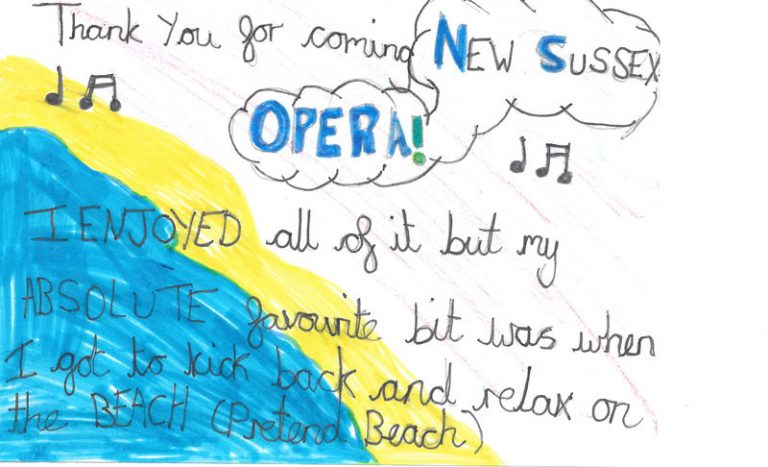 Thank You for coming NEW SUSSEX
OPERA!
I ENJOYED all of it but my
ABSOLUTE favourite bit was when
I got to kick back and relax on
the BEACH (Pretend Beach)